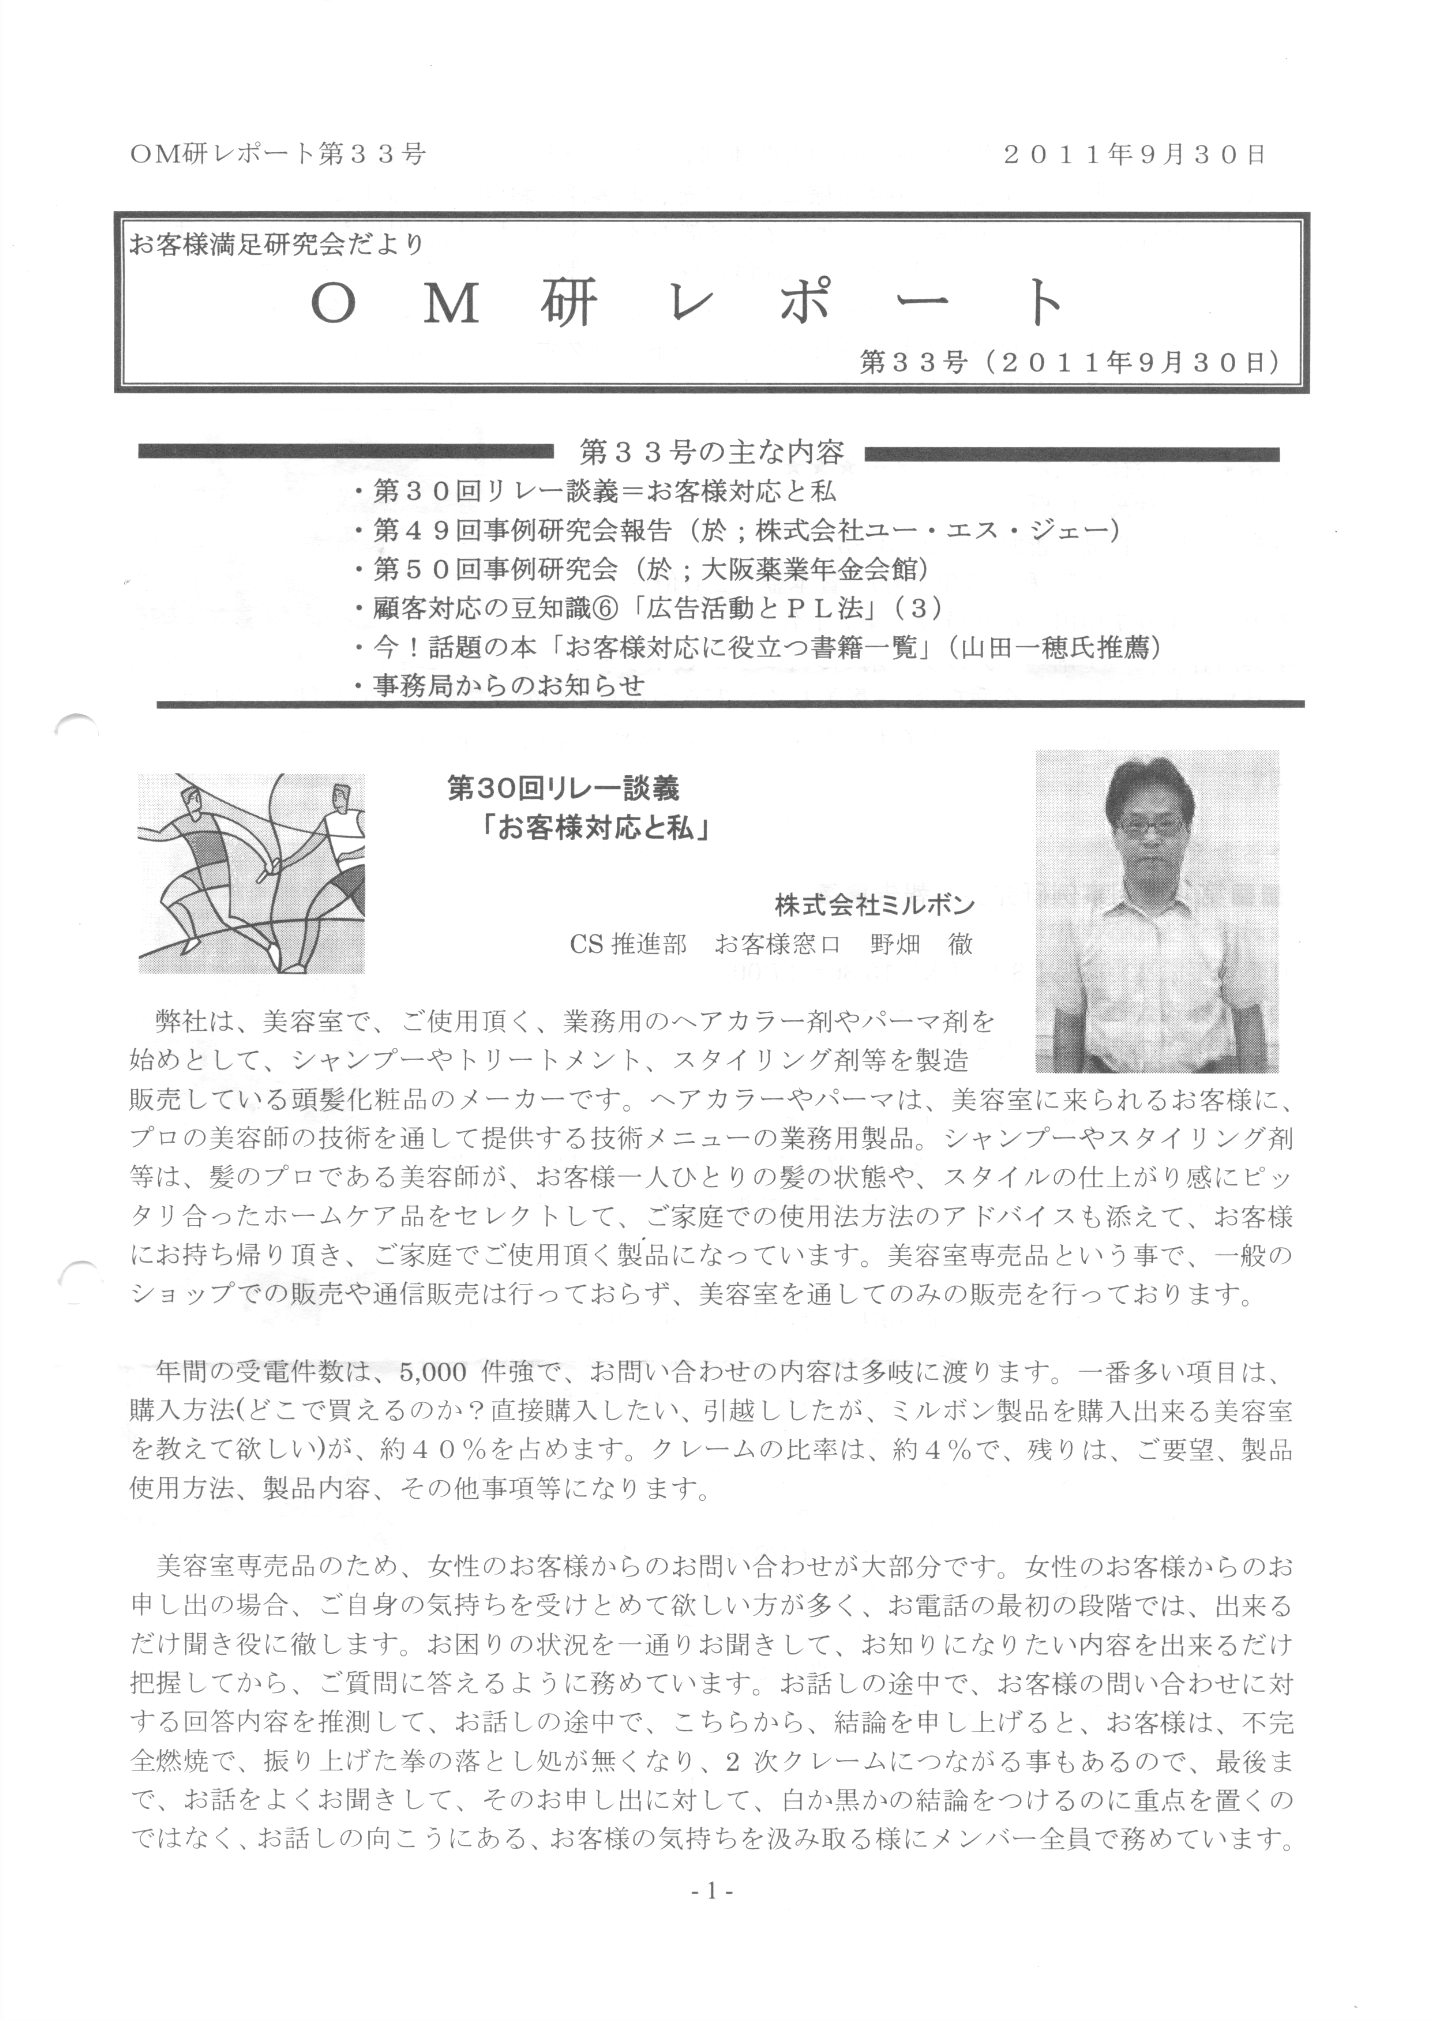 ＯＭ研レポート第３３号　２０１１年９月３０日
お客様満足研究会だより
ＯＭ研レポート
第３３号（２０１１年９月３０日）
第３３号の主な内容
・第３０回リレー談義＝お客様対応と私
・第４９回事例研究会報告（於；株式会社ユー・エス・ジェー）
・第５０回事例研究会（於；大阪薬業年金会館）
・顧客対応の豆知識⑥「広告活動とＰＬ法」（３）
・今！話題の本「お客様対応に役立つ書籍一覧」（山田一穂氏推薦）
・事務局からのお知らせ
第30回リレー談義
「お客様対応と私」
株式会社ミルボン
CS 推進部　お客様窓口　野畑　徹
弊社は、美容室で、ご使用頂く、業務用のヘアカラー剤やパーマ剤を
始めとして、シャンプーやトリートメント、スタイリング剤等を製造
販売している頭髪化粧品のメーカーです。ヘアカラーやパーマは、美容室に来られるお客様に、
プロの美容師の技術を通して提供する技術メニューの業務用製品。シャンプーやスタイリング剤
等は、髪のプロである美容師が、お客様一人ひとりの髪の状態や、スタイルの仕上がり感にピッ
タリ合ったホームケア品をセレクトして、ご家庭での使用法方法のアドバイスも添えて、お客様
にお持ち帰り頂き、ご家庭でご使用頂く製品になっています。美容室専売品という事で、一般の
ショップでの販売や通信販売は行っておらず、美容室を通してのみの販売を行っております。
年間の受電件数は、5,000 件強で、お問い合わせの内容は多岐に渡ります。一番多い項目は、
購入方法(どこで買えるのか？直接購入したい、引越ししたが、ミルボン製品を購入出来る美容室
を教えて欲しい)が、約４０％を占めます。クレームの比率は、約４％で、残りは、ご要望、製品
使用方法、製品内容、その他事項等になります。
美容室専売品のため、女性のお客様からのお問い合わせが大部分です。女性のお客様からのお
申し出の場合、ご自身の気持ちを受けとめて欲しい方が多く、お電話の最初の段階では、出来る
だけ聞き役に徹します。お困りの状況を一通りお聞きして、お知りになりたい内容を出来るだけ
把握してから、ご質問に答えるように務めています。お話しの途中で、お客様の問い合わせに対
する回答内容を推測して、お話しの途中で、こちらから、結論を申し上げると、お客様は、不完
全燃焼で、振り上げた拳の落とし処が無くなり、2 次クレームにつながる事もあるので、最後ま
で、お話をよくお聞きして、そのお申し出に対して、白か黒かの結論をつけるのに重点を置くの
ではなく、お話しの向こうにある、お客様の気持ちを汲み取る様にメンバー全員で務めています。
- 1 -